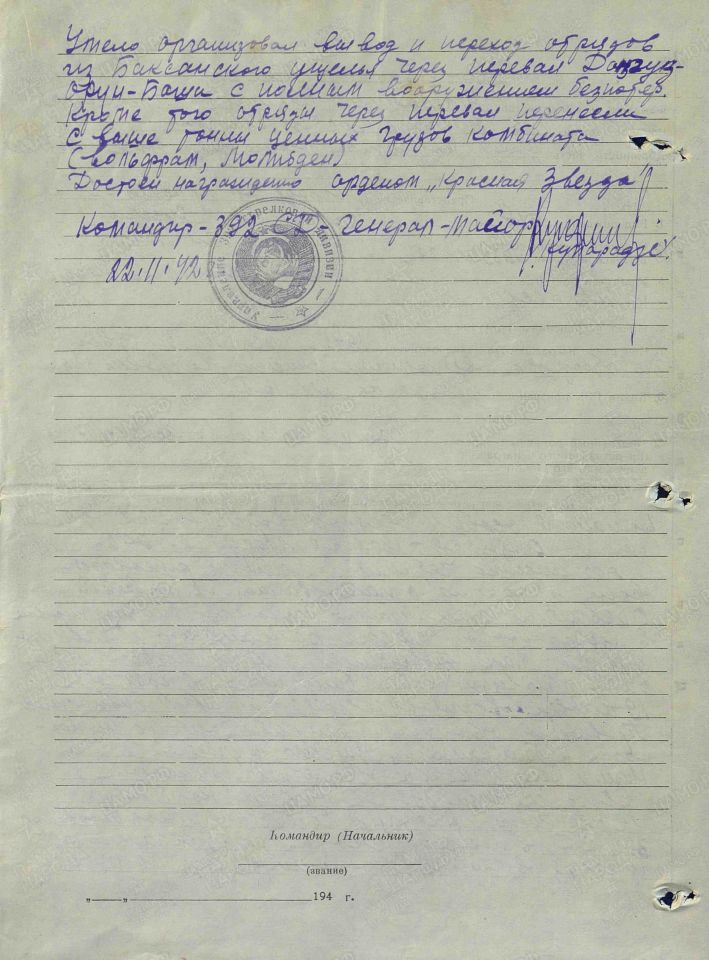 Умело организовал вывод и переход отрядов
из Баксанского ущелья через перевал Донгуз-
Орун-Баши с полным вооружением без потер.
Кроме того отряды через перевал перенесли
с выше тонны ценных грузов комбината
(Вольфрам, Молибден)
Достоен награждению орденом „Красная Звезда"
Командир - 392 СД - Генерал-Майор
22.11.42
Управление стрелковой дивизии
Командир (Начальник)
(звание)
„ " 194 г.